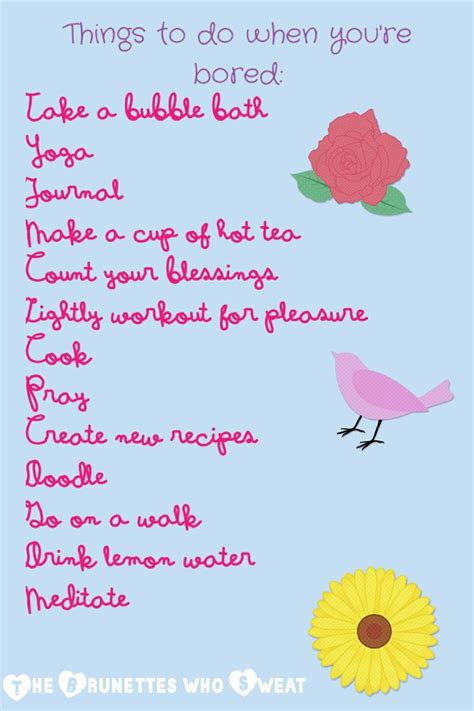 Things to do when you're
bored:
Take a bubble bath
Yoga
Journal
Make a cup of hot tea
Count your blessings
Lightly workout for pleasure
Cook
Pray
Create new recipes
Doodle
Go on a walk
Drink lemon water
Meditate
The Brunettes who Sweat